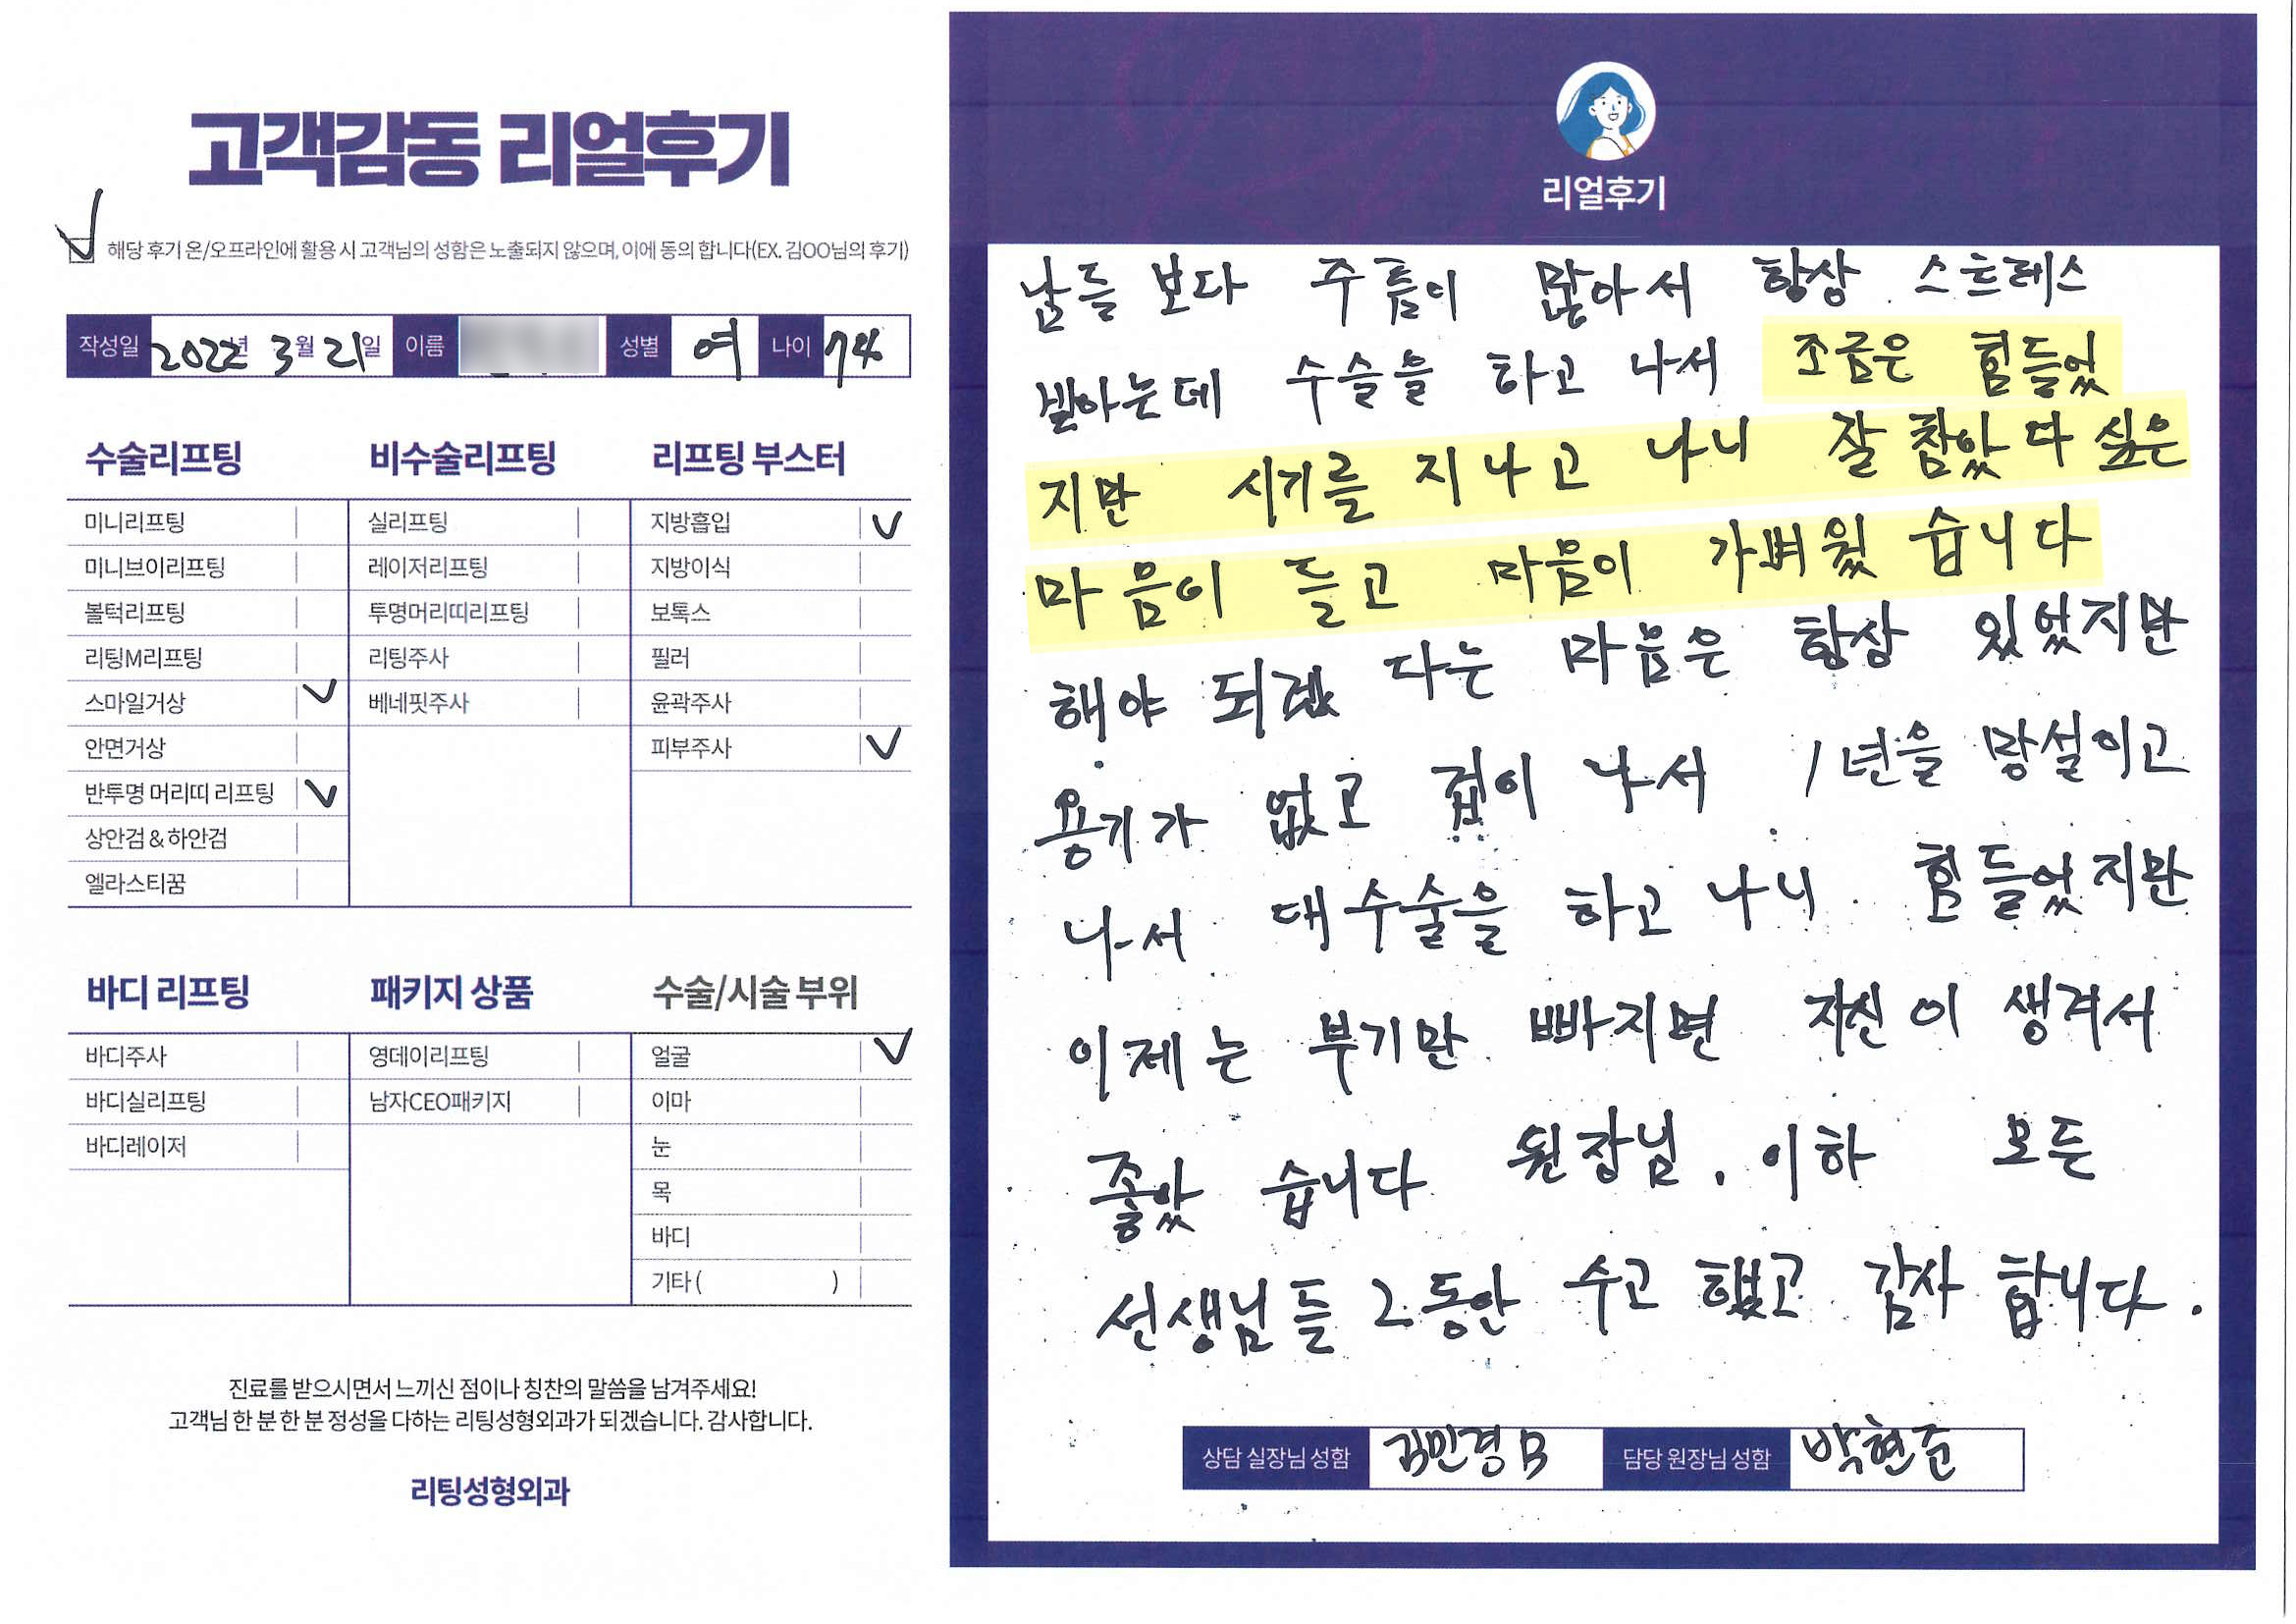 고객감동 리얼후기
해당 후기 온/오프라인에 활용 시 고객님의 성함은 노출되지 않으며, 이에 동의 합니다(EX. 김OO님의 후기)
작성일 2022년 3월 21일 이름 성별 여 나이 74
수술리프팅
미니리프팅
미니브이리프팅
볼턱리프팅
리팅M리프팅
스마일거상
안면거상
반투명 머리띠 리프팅
상안검 & 하안검
엘라스티꿈
비수술리프팅
실리프팅
레이저리프팅
투명머리띠리프팅
리팅주사
베네핏주사
리프팅 부스터
지방흡입
지방이식
보톡스
필러
윤곽주사
피부주사
바디 리프팅
바디주사
바디실리프팅
바디레이저
패키지 상품
영데이리프팅
남자CEO패키지
수술/시술 부위
얼굴
이마
눈
목
바디
기타 ( )
진료를 받으시면서 느끼신 점이나 칭찬의 말씀을 남겨주세요!
고객님 한 분 한 분 정성을 다하는 리팅성형외과가 되겠습니다. 감사합니다.
리팅성형외과
리얼후기
남들 보다 주름이 많아서 항상 스트레스
받아는데 수술을 하고 나서 조금은 힘들었
지만 시기를 지나고 나니 잘 참았다 싶은
마음이 들고 마음이 가벼웠 습니다
해야 되겠 다는 마음은 항상 있었지만
용기가 없고 겁이 나서 1년을 망설이고
나서 대수술을 하고 나니 힘들었지만
이제는 부기만 빠지면 자신이 생겨서
좋았 습니다 원장님. 이하 모든
선생님들 그동안 수고 했고 감사 합니다.
상담 실장님 성함 김민경B 담당 원장님 성함 박현준